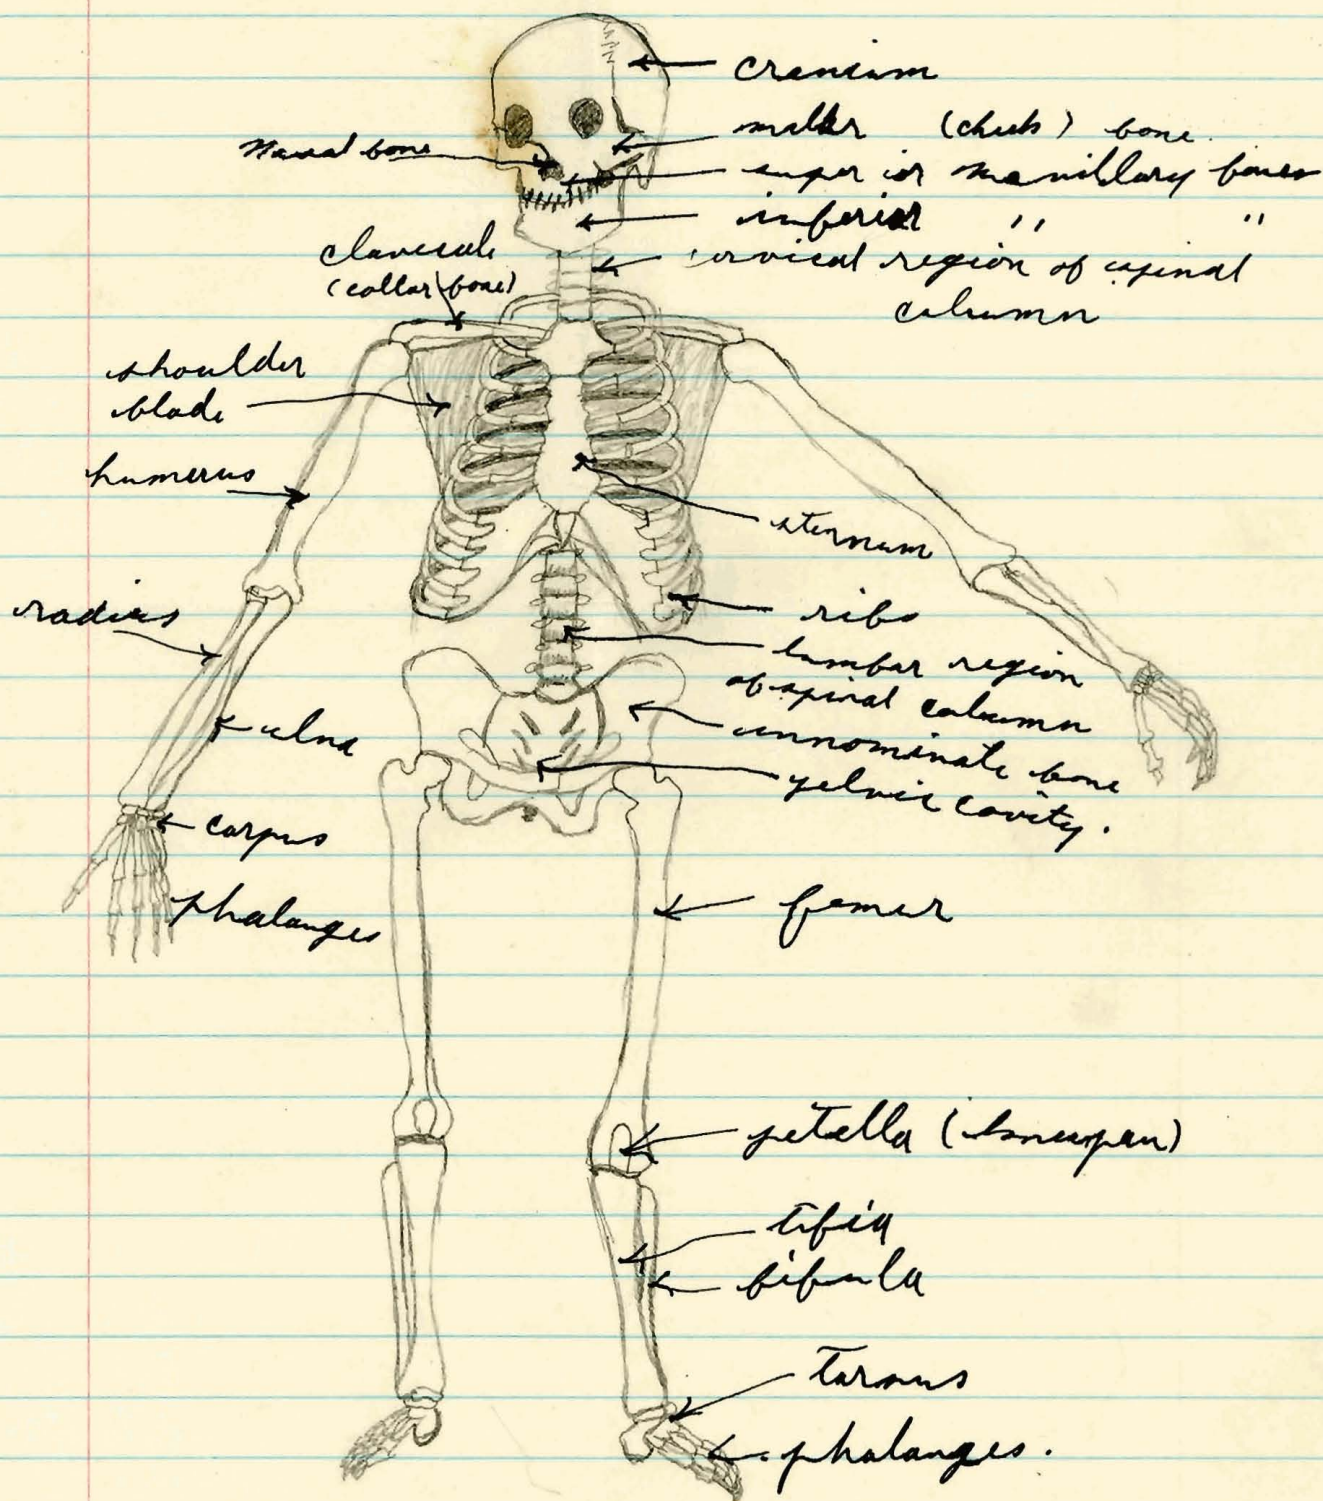 cranium
malar (cheek) bone.
Nasal bone
superior maxillary bones
inferior " "
clavicule
(collar bone)
cervical region of spinal
column
shoulder
blade
humerus
sternum
radius
ribs
lumbar region
of spinal column
innominate bone
pelvic cavity.
ulna
carpus
phalanges
femur
petella (kneepan)
tibia
fibula
tarsus
phalanges.